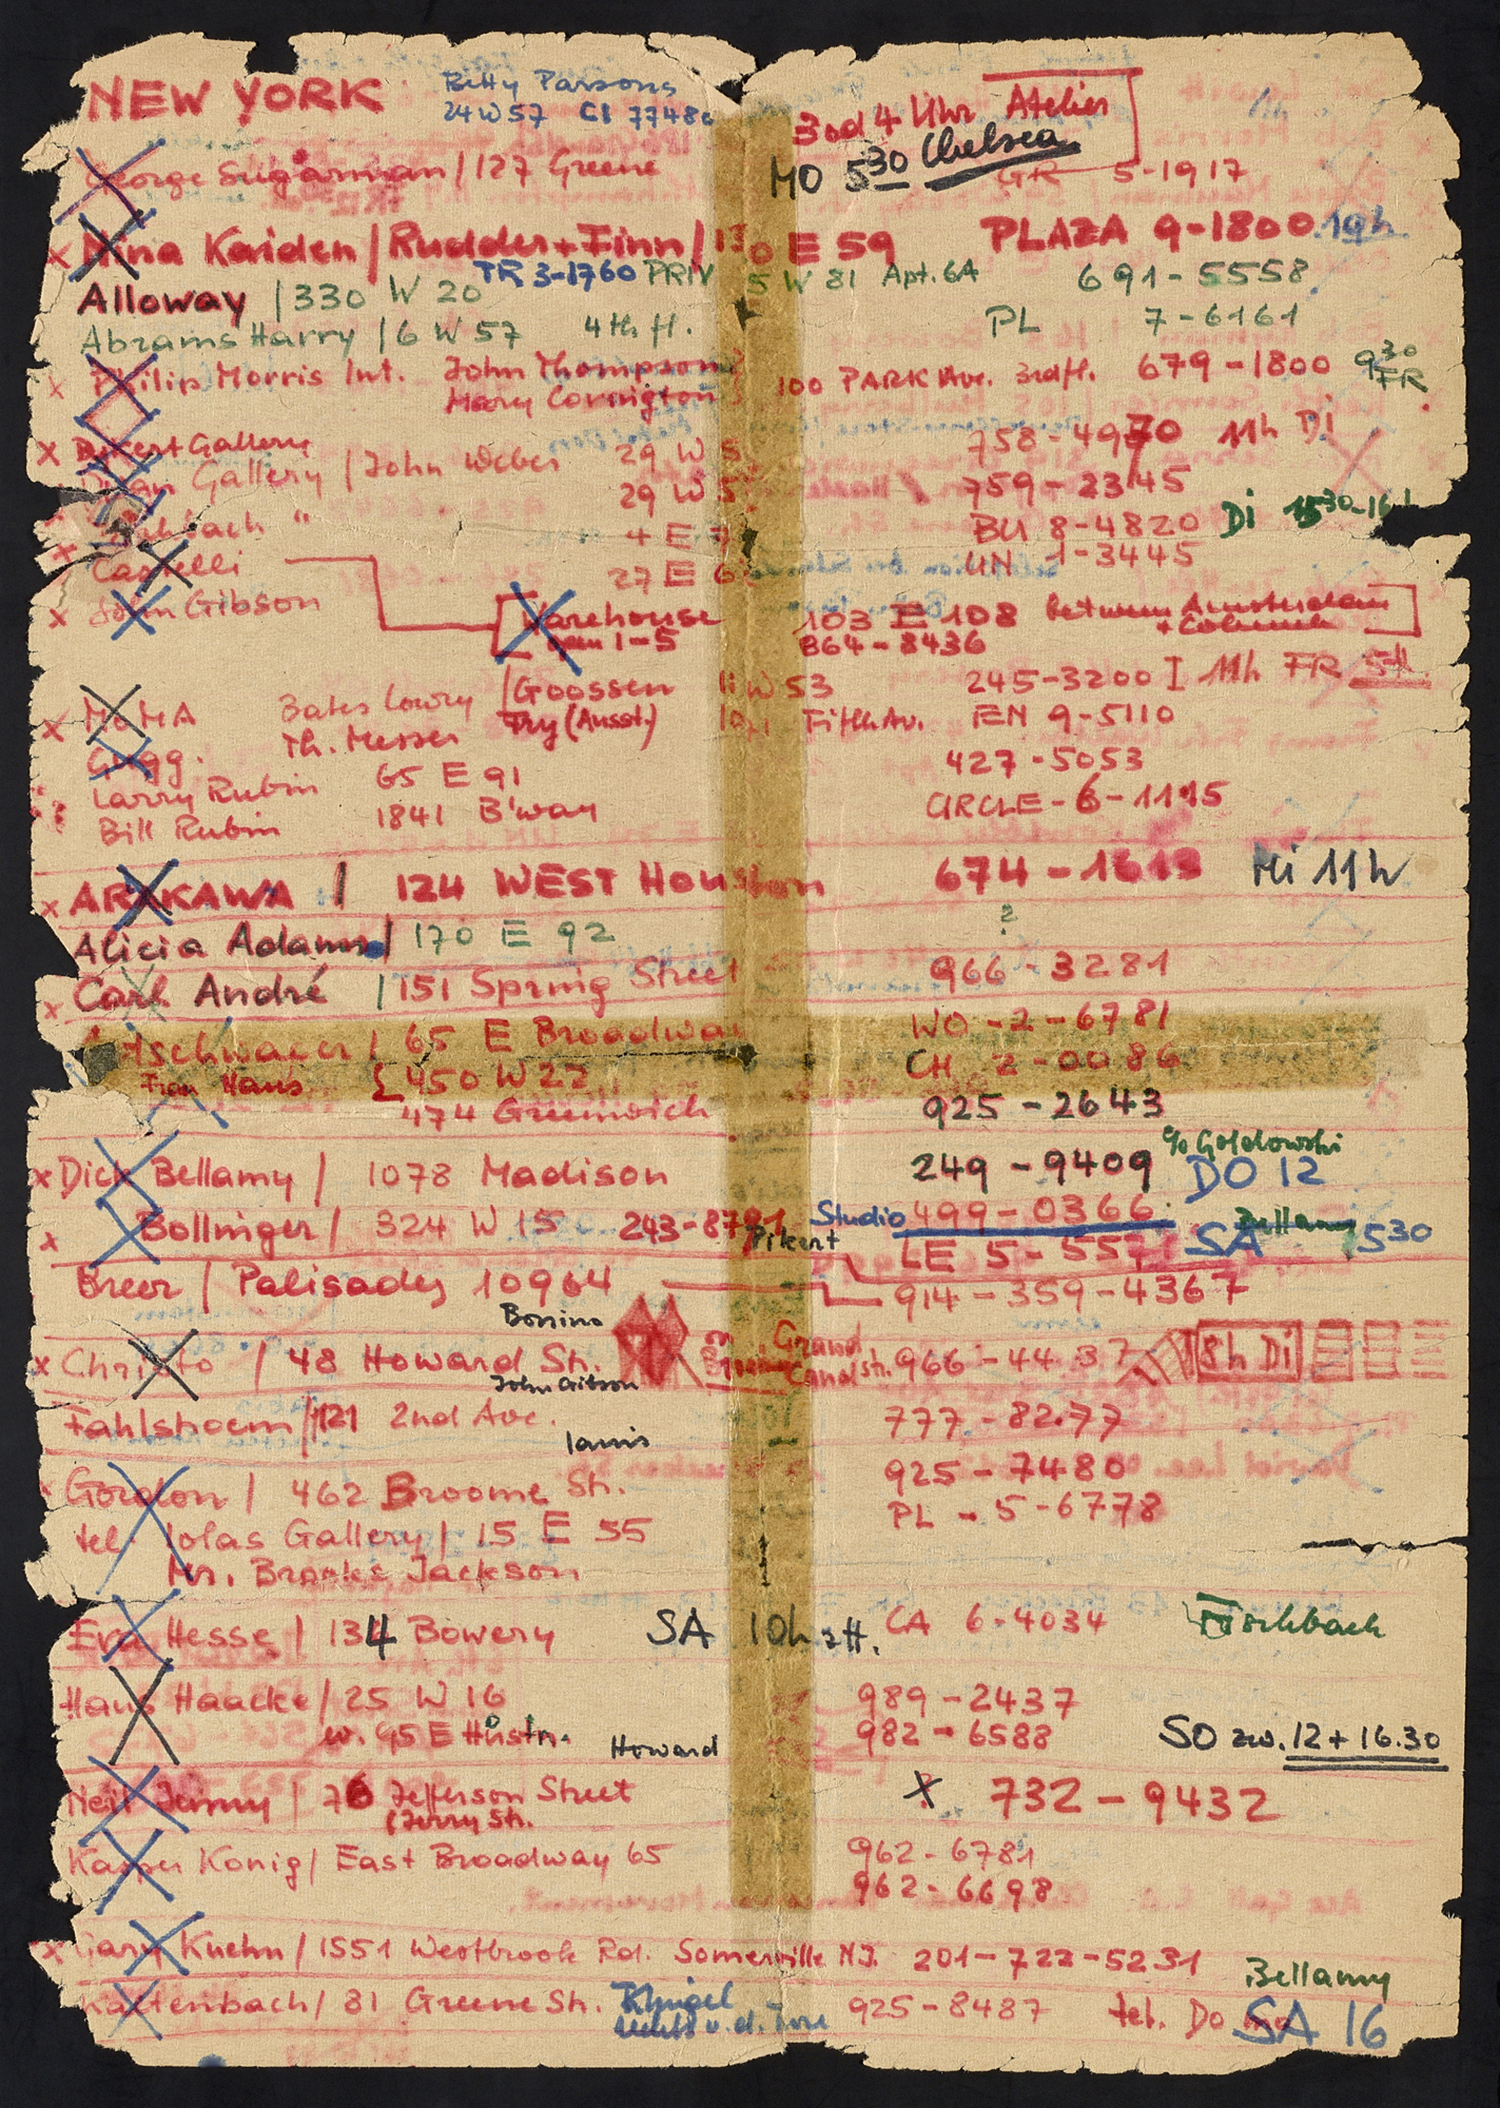 NEW YORK Betty Parsons
24 W 57 CI 7748
3 od 4 Uhr Atelier
MO 5 30 Chelsea
George Sugarman / 127 Greene GR 5-1917
x Nina Kaiden / Rudder + Finn / 110 E 59 PLAZA 9-1800 19h
TR 3-1760 PRIV 5 W 81 Apt. 6A
Alloway / 330 W 20 691-5558
Abrams Harry / 6 W 57 4th fl. PL 7-6161
x Philip Morris Int. John Thompson 100 PARK Av. 3rd fl. 679-1800 9 30 FR
Mary Covington
x Dwan Gallery 29 W 5 758-4970 11h Di
Gallery / John Weber 29 W 5 759-2345
" 4 E 7 BU 8-4820 Di 15 30-16 h
x Castelli 27 E 6 UN 1-3445
x John Gibson
Warehouse 103 E 108 between Amsterdam + Columb
open 1-5 864-8436
x MoMA Bates Lowry / Goossen 11 W 53 245-3200 I 11h FR
Gugg. Th. Messer Fry (Ausst.) Fifth Av. EN 9-5110
Larry Rubin 65 E 91 427-5053
Bill Rubin 1841 B'way CIRCLE-6-1195
x ARAKAWA / 124 WEST Houston 674-1619 Mi 11h
Alicia Adams / 170 E 92 ?
x Carl André / 151 Spring Street 966-3281
tschwager / 65 E Broadway WO-2-6781
Frau Haus { 450 W 22 CH 2-0086
474 Greenwich 925-2643
x Dick Bellamy / 1078 Madison 249-9409 c/o Goldowski DO 12
x Bollinger / 324 W 15 243-8791 Studio 499-0366
Pikert LE 5-557 SA Bellamy 1530
Breer / Palisades 10964 914-359-4367
Bonino
x Christo / 48 Howard Str. on Grand Canal str. 966-4437 8h Di
John Gibson
Fahlstroem / 121 2nd Ave. 777-8277
Ianis
x Gordon / 462 Broome Str. 925-7480
tel. Iolas Gallery / 15 E 55 PL-5-6778
Mr. Brooks Jackson
Eva Hesse / 134 Bowery SA 10h 2 H. CA 6-4034 Fischbach
Hans Haacke / 25 W 16 989-2437
w. 95 E Hustn. 982-6588 SO zw. 12 + 16.30
Howard
Neil Jenny / 76 Jefferson Street x 732-9432
(Ferry Str.
Kasper König / East Broadway 65 962-6781
962-6698
x Gary Kuehn / 1551 Westbrook Rd. Somerville N.J. 201-722-5231
Kaltenbach / 81 Greene Str. Klingel 925-8487 tel. Do Bellamy
v. d. Türe SA 16